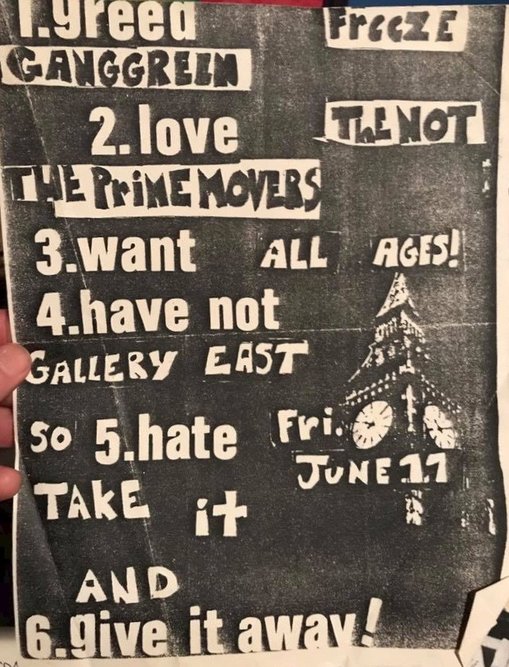 1.greed
FreeZE
GANGGREEN
2.love
The NOT
THE PriME MOVERS
3.want
ALL AGES!
4.have not
GALLERY EAST
So 5.hate
Fri.
JUNE 11
TAKE it
AND
6.give it away!